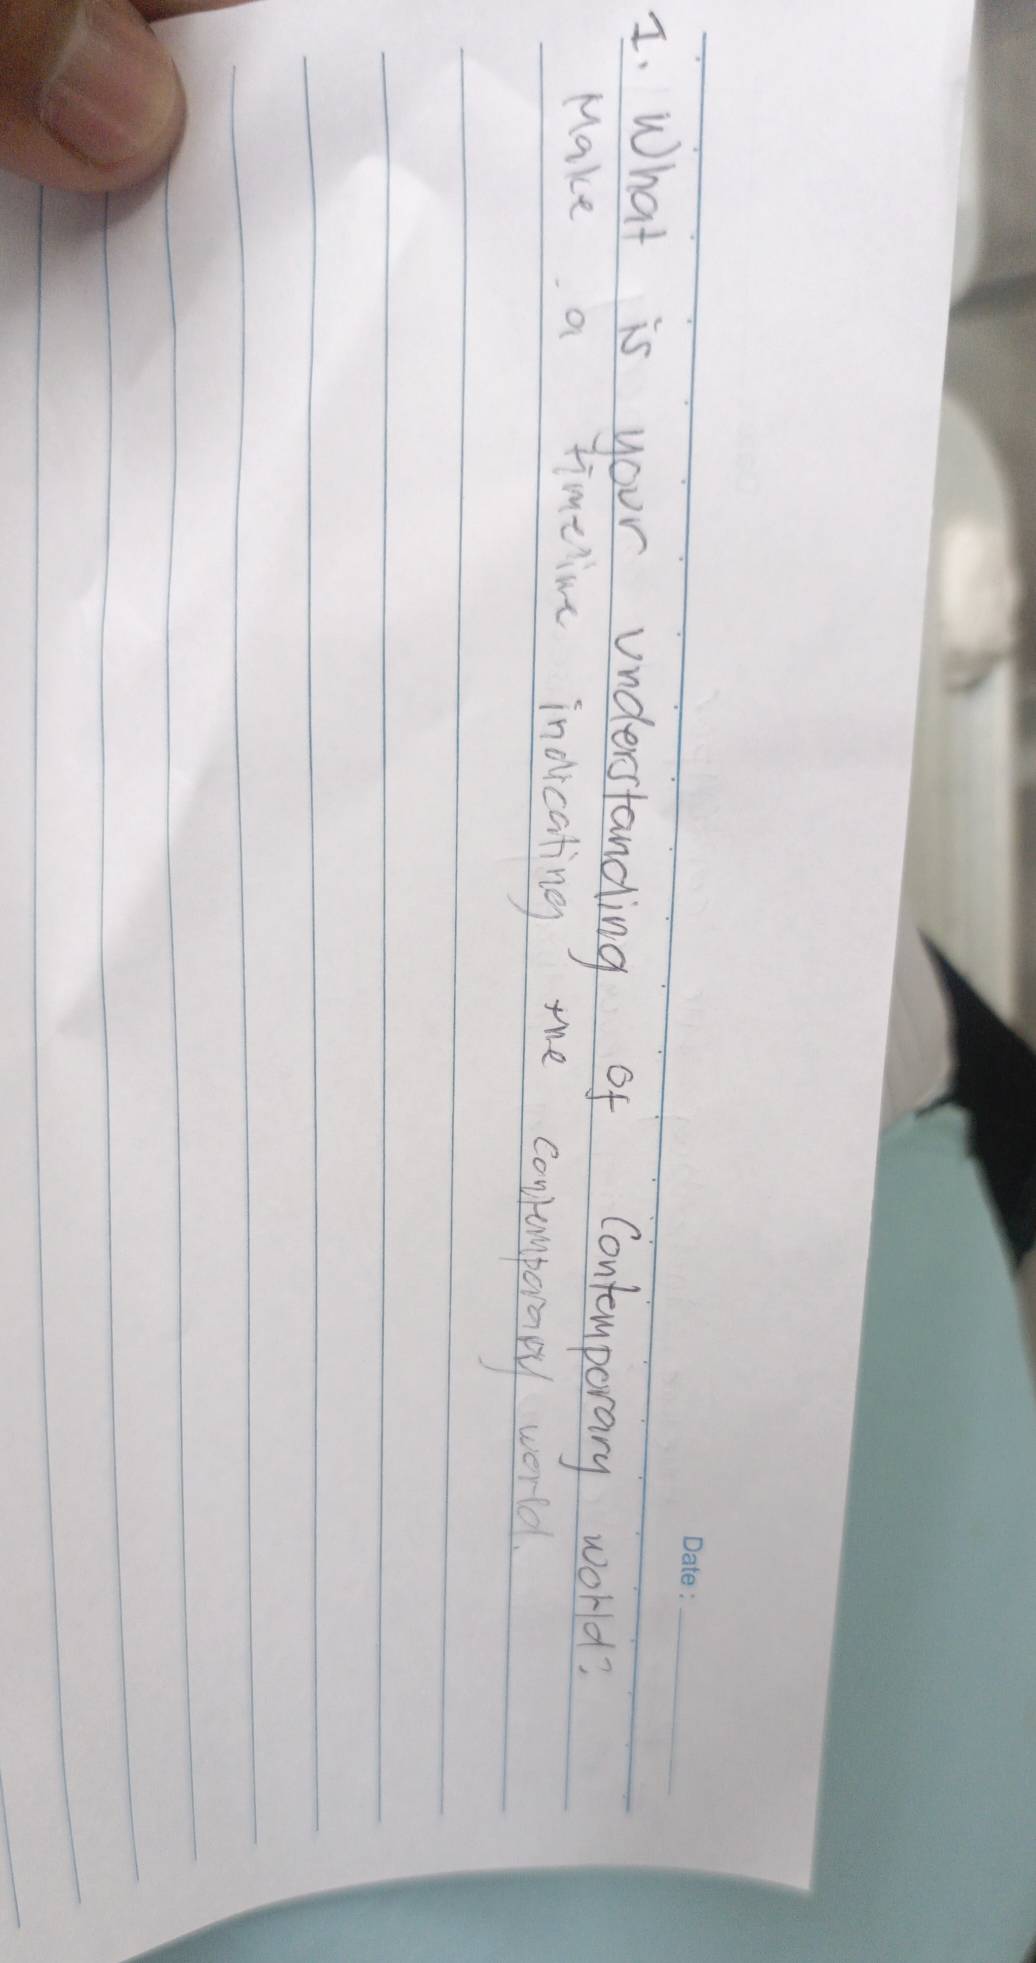 Date :
1. What is your understanding of Contemporary world?
Make a timeline indicating the contemporary world.